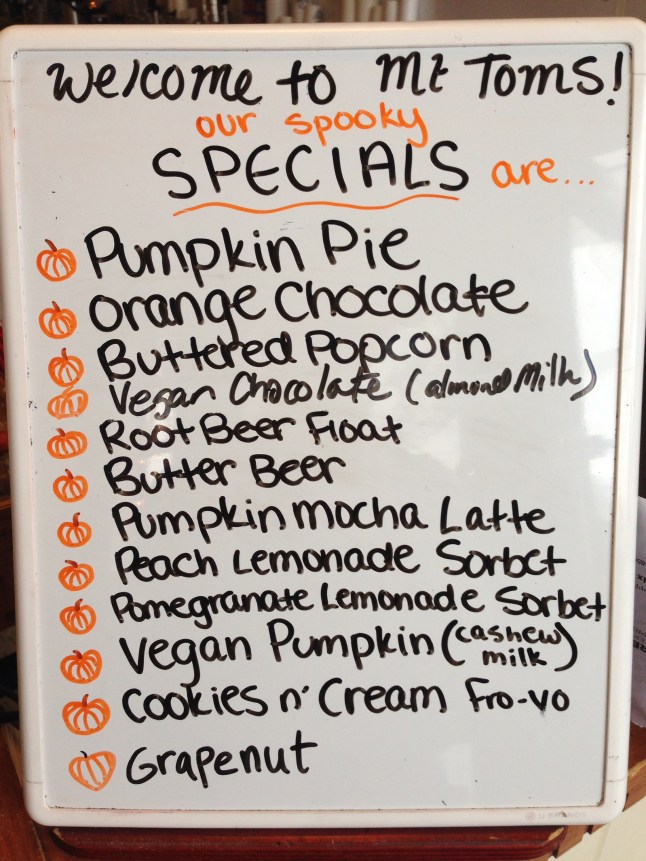 Welcome to Mt Toms!
our spooky
SPECIALS are...
Pumpkin Pie
Orange Chocolate
Buttered Popcorn
Vegan Chocolate (almond Milk)
Root Beer Float
Butter Beer
Pumpkin Mocha Latte
Peach Lemonade Sorbet
Pomegranate Lemonade Sorbet
Vegan Pumpkin (cashew milk)
Cookies n' Cream Fro-yo
Grapenut